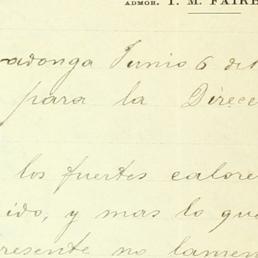 ADMOR. T. M. FAIRB
adonga Junio 6 de
para la Direc
los fuertes calore
ido, y mas lo que
resente no lamen